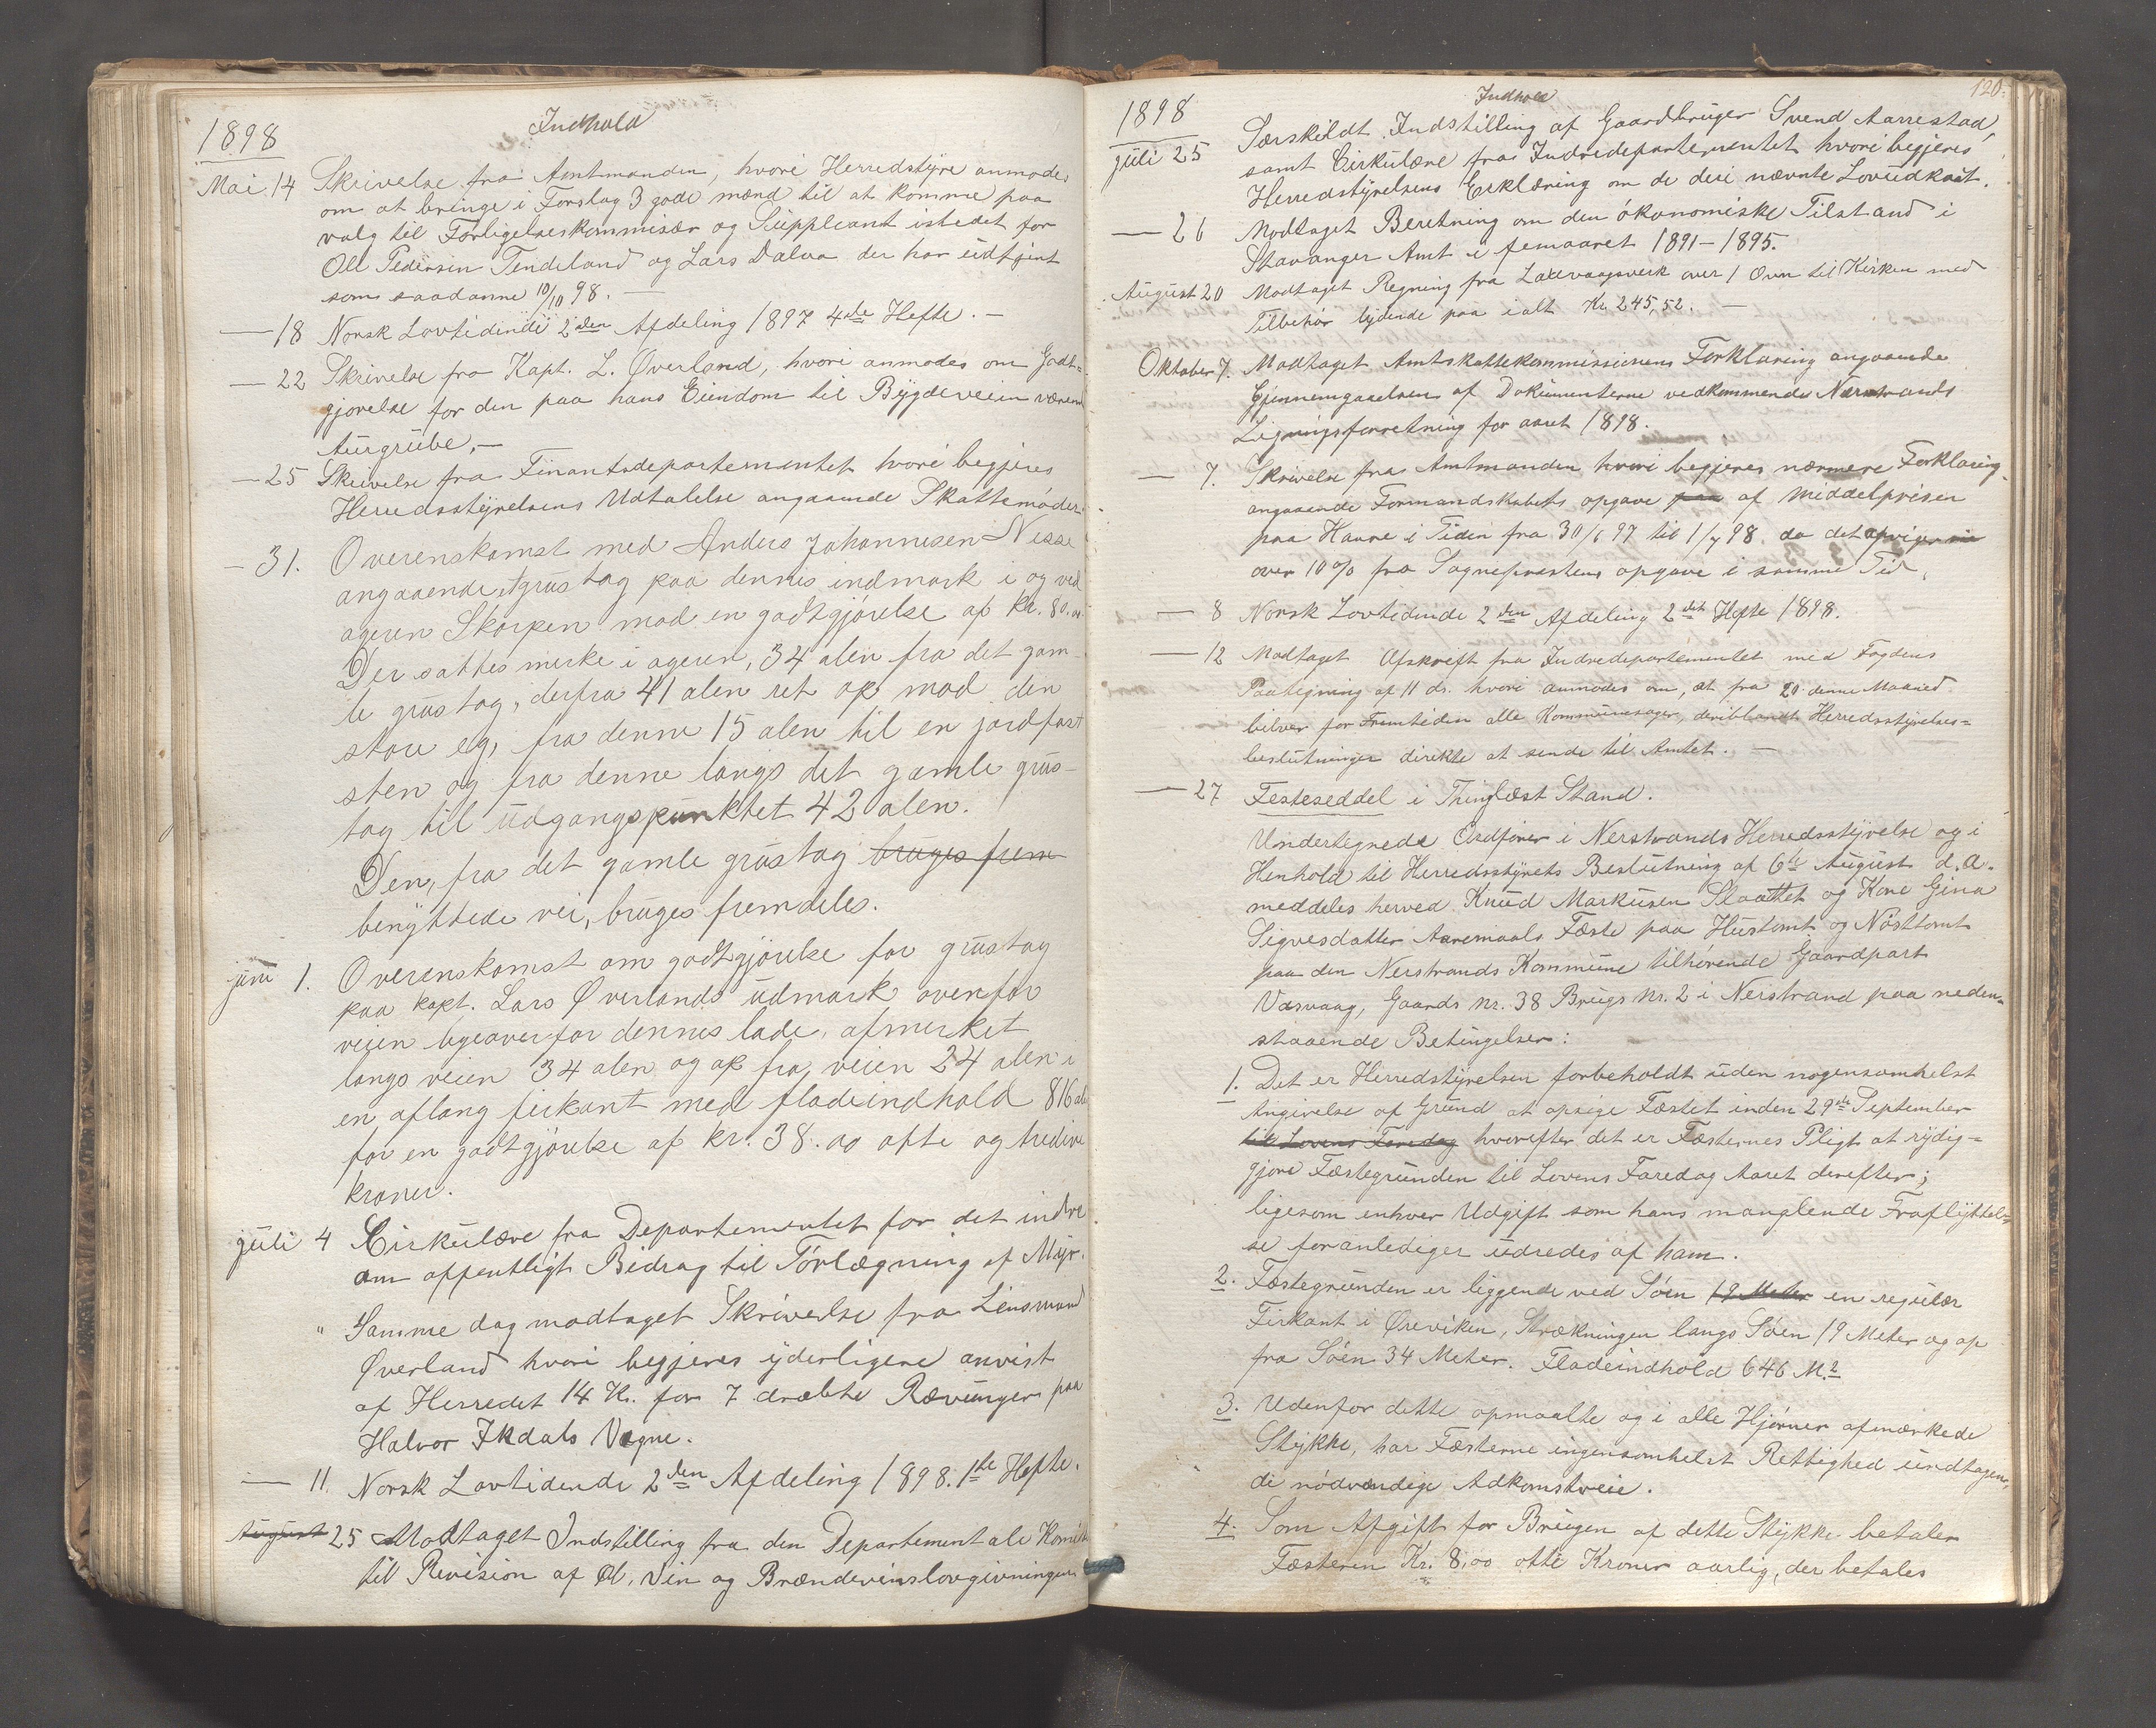 Indhold
1898
Mai 14 Skrivelse fra Amtmanden, hvori Herredstyre anmodes
om at bringe i Forslag 3 gode mænd til at komme paa
valg til Forligelseskommisær og Suppleant istedet for
Ole Pedersen Tendeland og Lars Dalva der har udtjent
som saadanne 10/10 98. —
— 18 Norsk Lovtidende 2den Afdeling 1897 4de Hefte. —
— 22 Skrivelse fra Kapt. L. Øverland, hvori anmodes om Godt-
gjørelse for den paa hans Eiendom til Bygdeveien værende
Aurgrube. —
— 25 Skrivelse fra Finantsdepartementet hvori begjæres
Herredsstyrelsens Udtalelse angaaende Skattemøder.
— 31. Overenskomst med Anders Johannesen Nesse
angaaende grustag paa dennes indmark i og ved
ageren Skorpen mod en godtgjörelse af kr. 80.00
Der sattes merke i ageren, 34 alen fra det gam-
le grustag, derfra 41 alen ret op mod den
store eg, fra denne 15 alen til en jordfast
sten og fra denne langs det gamle grus-
tag til udgangspunktet 42 alen.
Den, fra det gamle grustag bruges frem
benyttede vei, bruges fremdeles.
juni 1. Overenskomst om godtgjörelse for grustag
paa kapt. Lars Øverlands udmark ovenfor
veien ligeoverfor dennes lade, afmerket
langs veien 34 alen og op fra veien 24 alen i
en aflang firkant med fladeindhold 816 al
for en godtgjörelse af kr. 38.00 otte og tredive
kroner.
juli 4 Cirkulære fra Departementet for det indre
om offentligt Bidrag til Törlægning af Myr.
" Samme dag modtaget Skrivelse fra Lensmand
Øverland hvori begjæres yderligere anvist
af Herredet 14 Kr. for 7 dræbte Rævunger paa
Halvor Ikdals Vegne.
— 11. Norsk Lovtidende 2den Afdeling 1898. 1ste Hefte.
August 25 Modtaget Indstilling fra den Departementale Komité
til Revision af Øl, Vin og Brændevinslovgivningen
120.
Indhold
1898
juli 25 Særskildt Indstilling af Gaardbruger Svend Aarrestad,
samt Cirkulære fra Indredepartementet hvori begjæres
Herredstyrelsens Erklæring om de deri nævnte Lovudkast.
— 26 Modtaget Beretning om den økonomiske Tilstand i
Stavanger Amt i femaaret 1891–1895.
August 20 Modtaget Regning fra Laxevaagsverk over 1 Ovn til Kirken med
Tilbehör lydende paa ialt Kr. 245,52. —
Oktober 7. Modtaget Amtskattekommissionens Forklaring angaaende
Gjennemgaaelsen af Dokumenterne vedkommende Nærstrands
Ligningsforretning for aaret 1898.
— 7. Skrivelse fra Amtmanden hvori begjæres nærmere Forklaring
angaaende Formandskabets opgave paa af Middelprisen
paa Havre i Tiden fra 30/6 97 til 1/7 98. da det afviger
over 10% fra Sogneprestens opgave i samme Tid.
— 8 Norsk Lovtidende 2den Afdeling 2det Hefte 1898.
— 12 Modtaget Afskrift fra Indredepartementet med Fogdens
Paategning af 11 ds. hvori anmodes om, at fra 20. denne Maaned
beliver for Fremtiden alle Kommunesager, deriblandt Herredsstyrelses-
beslutninger direkte at sende til Amtet. —
— 27 Festeseddel i Thinglæst Stand.
Undertegnede Ordfører i Nerstrands Herredsstyrelse og i
Henhold til Herredsstyrets Beslutning af 6te August d.A.
meddeles herved Knud Markusen Slaattet og Kone Gina
Sigvesdatter Aaremaals Fæste paa Hustomt og Nösttomt
paa den Nerstrands Kommune tilhørende Gaardpart
Vasvaag, Gaards nr. 38 Brugs Nr. 2 i Nerstrand paa neden-
staaende Betingelser:
1. Det er Herredstyrelsen forbeholdt uden nogensomhelst
Angivelse af Grund at opsige Fæstet inden 29de September
til Lovens Faredag hvorefter det er Fæsternes Pligt at rydig-
gjøre Fæstegrunden til Lovens Faredag Aaret derefter;
ligesom enhver Udgift som hans manglende Fraflyttel-
se foranlediger udredes af ham.
2. Fæstegrunden er liggende ved Søen 19 Meter en regulær
Firkant i Øreviken, Strækningen langs Søen 19 Meter og op
fra Söen 34 Meter. Fladeindhold 646 M.2
3. Udenfor dette opmaalte og i alle Hjørner afmærkede
Stykke, har Fæsterne ingensomhelst Rettighed undtagen
de nödvændige Adkomstveie.
4. Som Afgift for Brugen af dette Stykke betaler
Fæsteren Kr. 8.00 otte Kroner aarlig, der betales